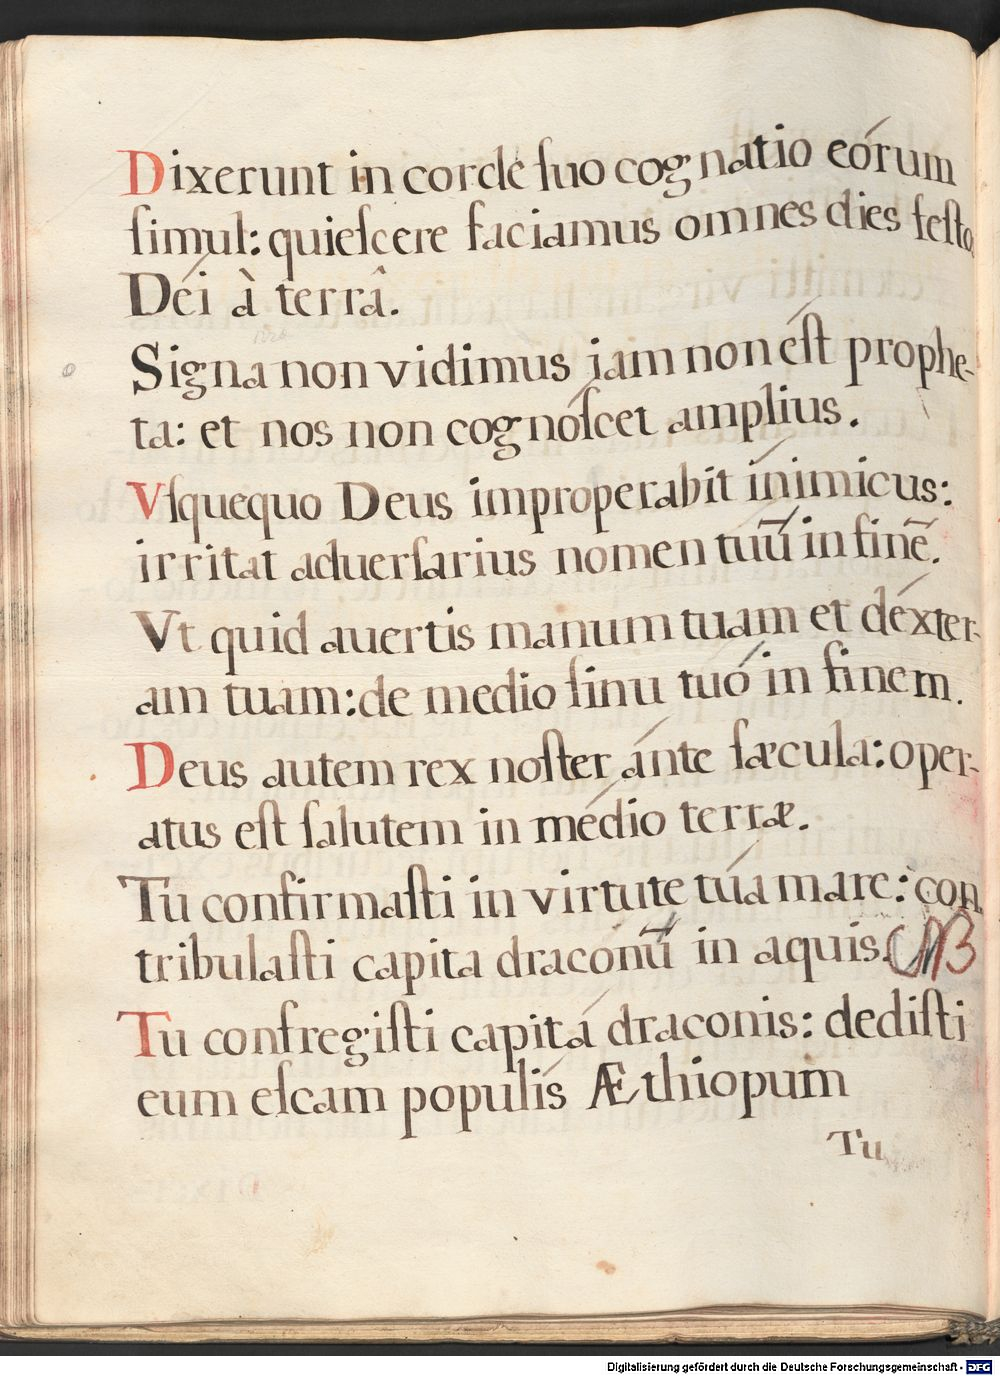 Dixerunt in corde ſuo cognatio eórum
ſimul: quieſcere faciamus omnes dies feſtos
Déi à terrâ.
Signa non vidimus iam non éſt prophe-
ta: et nos non cognóſcet amplius.
Vſquequo Deus improperabit ínimicus:
irritat aduerſarius nomen tuū in finē.
Vt quid auertis manum tuam et déxter-
am tuam: de medio ſinu tuó in finem.
Deus autem rex noſter ánte ſæcula: oper-
atus eſt ſalutem in médio terræ.
Tu confirmaſti in virtute túa mare: con
tribulaſti capita dracónū in aquis.
Tu confregiſti capitá draconis: dediſti
eum eſcam populís Æthiopum
Tu
Digitalisierung gefördert durch die Deutsche Forschungsgemeinschaft - DFG